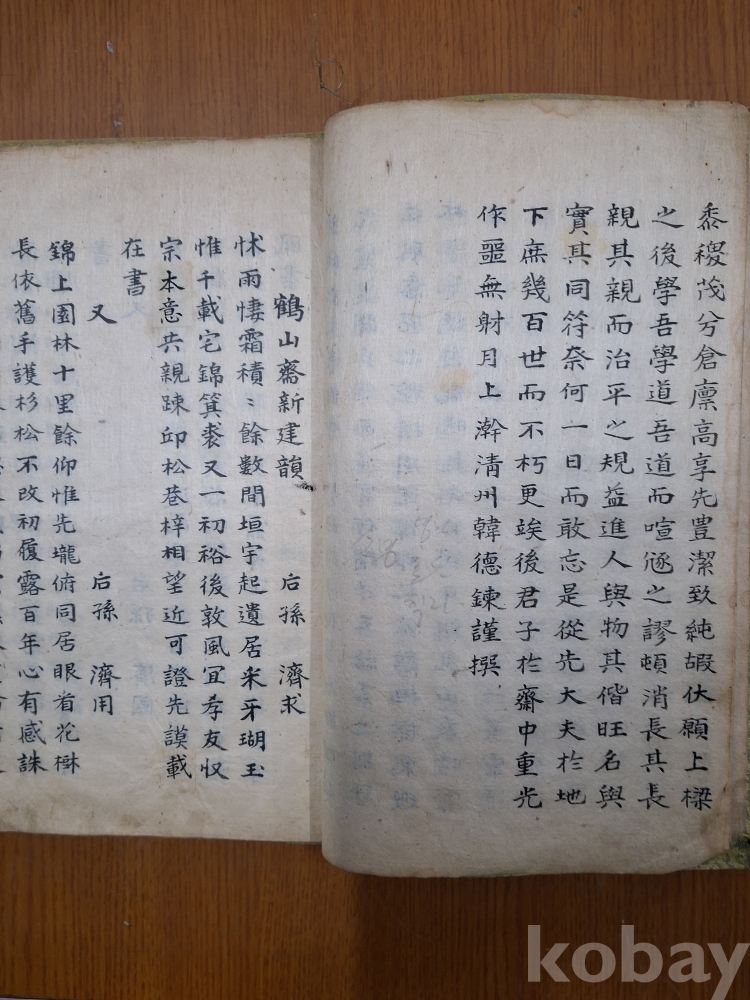 黍稷茂兮倉廩高享先豊潔致純嘏伏願上樑
之後學吾學道吾道而喧豗之謬頓消長其長
親其親而治平之規益進人與物其偕旺名與
實其同符奈何一日而敢忘是從先大夫於地
下庶幾百世而不朽更竢後君子於齋中重光
作噩無射月上澣淸州韓德鍊謹撰
鶴山齋新建韻 后孫 濟求
怵雨悽霜積〻餘數間垣宇起遺居米牙瑚玉
惟千載宅錦箕裘又一初裕後敦風宜孝友収
宗本意共親踈邱松巷梓相望近可證先謨載
在書
又 后孫 濟用
錦上園林十里餘仰惟先壠俯同居眼看花樹
長依舊手護杉松不改初履露百年心有感誅
kobay